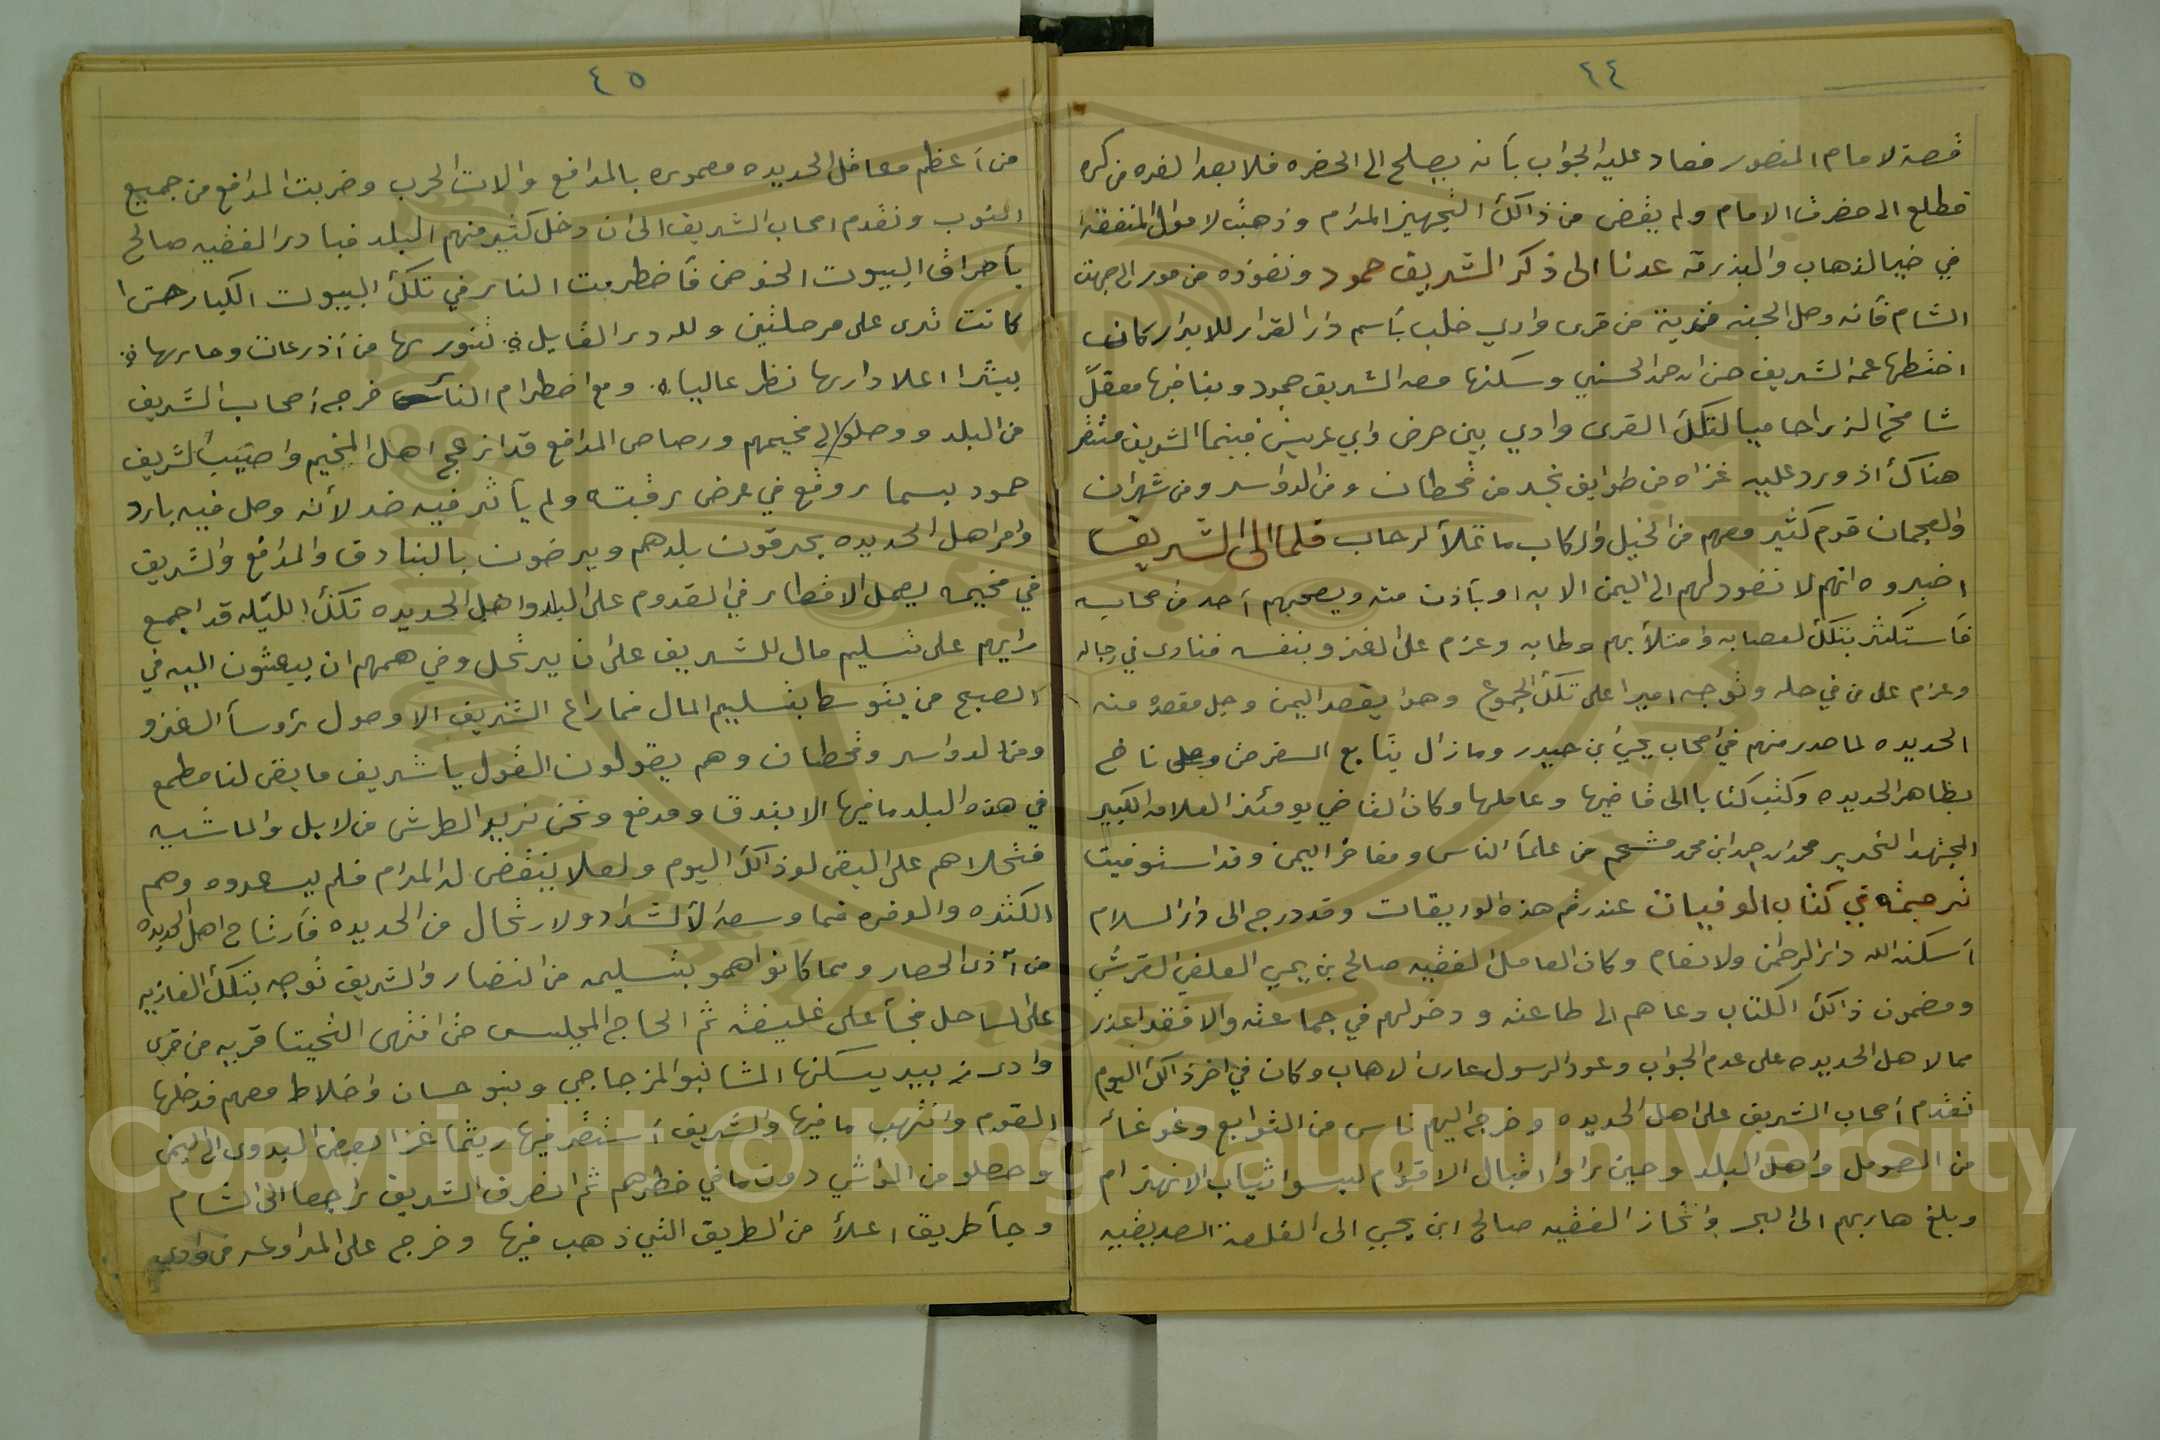 ٤٤
قصة لامام المنصور فعاد عليه الجواب بأنه يصلح الى الحضره فلا بعد الفره من كره
فطلع الى حضرت الامام ولم يقض من ذالك التجهيز المرام وذهبت لاموال المنفقة
في خيبا لذهاب والبذرقه عدنا الى ذكر الشريف حمود ونفوذه من مور الى جهت
الشام فأنه وصل الجنه قرية من قرى وادي خلب بأسم دار القرار للابرار كان
اختطها عمه الشريف حسن ابن احمد الحسني وسكنها معه الشريف حمود وبنا فيها معقلاً
شامخ الذرا حاميا لتلك القرى وادي بين حرض وابي عريش فبينما الشريف مستقر
هناك اذ ورد عليه غزاه من طوايف نجد من قحطان ومن الدواسر ومن شهران
والعجمان قوم كثير معهم من الخيل والركاب ما تملأ الرحاب فلما الى الشريف
اخبروه انهم لا نفوذ لهم الى اليمن الا به او بأذن منه ويصحبهم أحد من صحابه
فأستكثر بتلك لعصابه وامتلأ بهم وطابه وعزم على الغزو بنفسه فنادى في رجاله
وعزم على من في حله وتوجه اميرا على تلك الجموع وهوا يقصد اليمن وجل مقصده منه
الحديده لما صدر منهم في اصحاب يحيى ابن حيدر وما زال يتابع السفر حتى ناخ
بظاهر الحديده وكتب كتابا الى قاضيها وعاملها وكان القاضي يومئذ العلامه الكبير
المجتهد النحرير محمد ابن احمد ابن محمد مشحم من علمأ الناس ومفاخر اليمن وقد استوفيت
ترجمته في كتاب الوفيات عند رقم هذه الوريقات وقد درج الى دار السلام
أسكنه الله دار الرحمن ولانعام وكان العامل الفقيه صالح بن يحيى العلفي القرشي
ومضمون ذالك الكتاب دعاهم الى طاعته ودخولهم في جماعته والا فقد اعذر
مما لاهل الحديده على عدم الجواب وعود الرسول عارى الاهاب وكان في اخر ذالك اليوم
تقدم أصحاب الشريف على اهل الحديده وخرج اليهم ناس من التوابع وغوغاء
من الصومل واهل البلد وحين راوا اقبال الاقوام لبسوا ثياب الانهزام
وبلغ هاربهم الى البحر وانحاز الفقيه صالح ابن يحيى الى القلعة الصديقيه
٤٥
من أعظم معاقل الحديده معموره بالمدافع والات الحرب وضربت المدافع من جميع
النوب وتقدم اصحاب الشريف الى ان دخل كثير منهم البلد فبادر الفقيه صالح
بأحراق البيوت الخوص فأضطرمت النار في تلك البيوت الكبار حتى ا
كانت ترى على مرحلتين ولله در القايل تنورتها من أذرعات ودارها
بيثرب اعلا دارها نظر عاليا ومع اضطرام النار خرج أصحاب الشريف
من البلد ووصلو الى مخيمهم ورصاص المدافع قد ازعج اهل المخيم واصيب الشريف
حمود بسمار وقع في عرض رقبته ولم يأثر فيه ضر لأنه وصل فيه بارد
وامر اهل الحديده يحرقون بلدهم ويرضون بالبنادق والمدافع والشريف
في مخيمه يعمل الافطار في القدوم على البلد واهل الحديده تلك الليله قد اجمع
رايهم على تسليم مال للشريف على ان يرتحل وفي همهم ان يبعثون اليه في
الصبح من يتوسط بتسليم المال فما راع الشريف الا وصول رؤسأ الغزو
ومن الدواسر وقحطان وهم يقولون القول يا شريف ما بقى لنا مطمع
في هذه البلد ما فيها الا بندق ومدفع ونحن نريد الطرش من لابل والماشيه
فتحلاهم على البقى لو ذالك اليوم ولعلا ينقضى له المرام فلم يسعدوه وهم
الكثره والوفره فما وسعه الا لشداد ولارتحال من الحديده فأرتاح اهل الحديده
من أذى الحصار ومما كانوا هموا بتسليمه من النضار والشريف توجه بتلك الغازيه
على الساحل فجأ على غليفقه ثم الحاج المجليس حتى انتهى التحيتا قريه من قرى
وادى زبيد يسكنها المشا نبوا لمزجاجي وبنو حسان واخلاط معهم فدخلها
القوم وانتهب ما فيها والشريف أستقر فيها ريثما غزا بعض البدوى الى اليمن
وحصلو من المواشي دون ما في خطرهم ثم انصرف الشريف راجعا الى الشام
وجأ طريق اعلأ من الطريق التي ذهب فيها وخرج على المراوعه من وادي
Copyright © King Saud University
1957